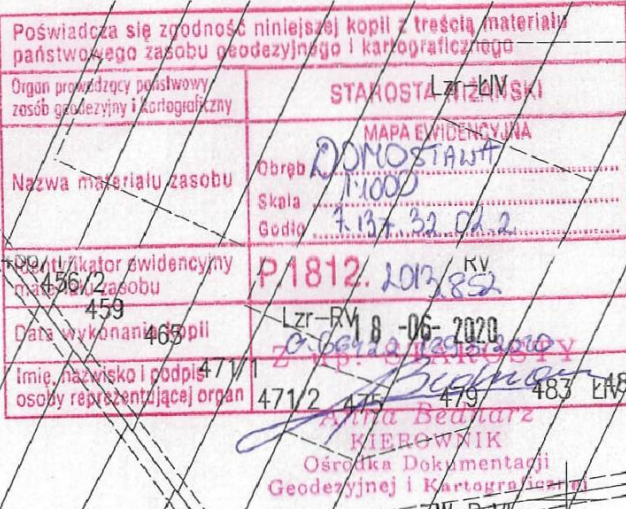 Poświadcza się zgodność niniejszej kopii z treścią materiału
państwowego zasobu geodezyjnego i kartograficznego
Organ prowadzący państwowy
zasób geodezyjny i kartograficzny
STAROSTA NIŻAŃSKI
Lzr-ŁIV
Nazwa materiału zasobu
MAPA EWIDENCYJNA
Obręb DOMOSTAWA
Skala 1:1000
Godło 7.137.32.02.2
Identyfikator ewidencyjny
materiału zasobu
P.1812.2013.852
RV
456/2
459
465
Data wykonania kopii
Lzr-RV
18 -06- 2020
Z up. STAROSTY
Imię, nazwisko i podpis
osoby reprezentującej organ
471/1
471/2
475
479
483
ŁIV
Anna Bednarz
KIEROWNIK
Ośrodka Dokumentacji
Geodezyjnej i Kartograficznej